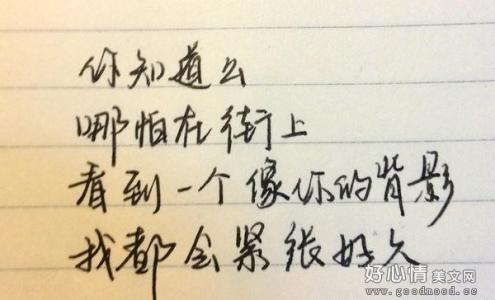 你知道么
哪怕在街上
看到一个像你的背影
我都会紧张好久
好心情美文网
www.goodmood.cc